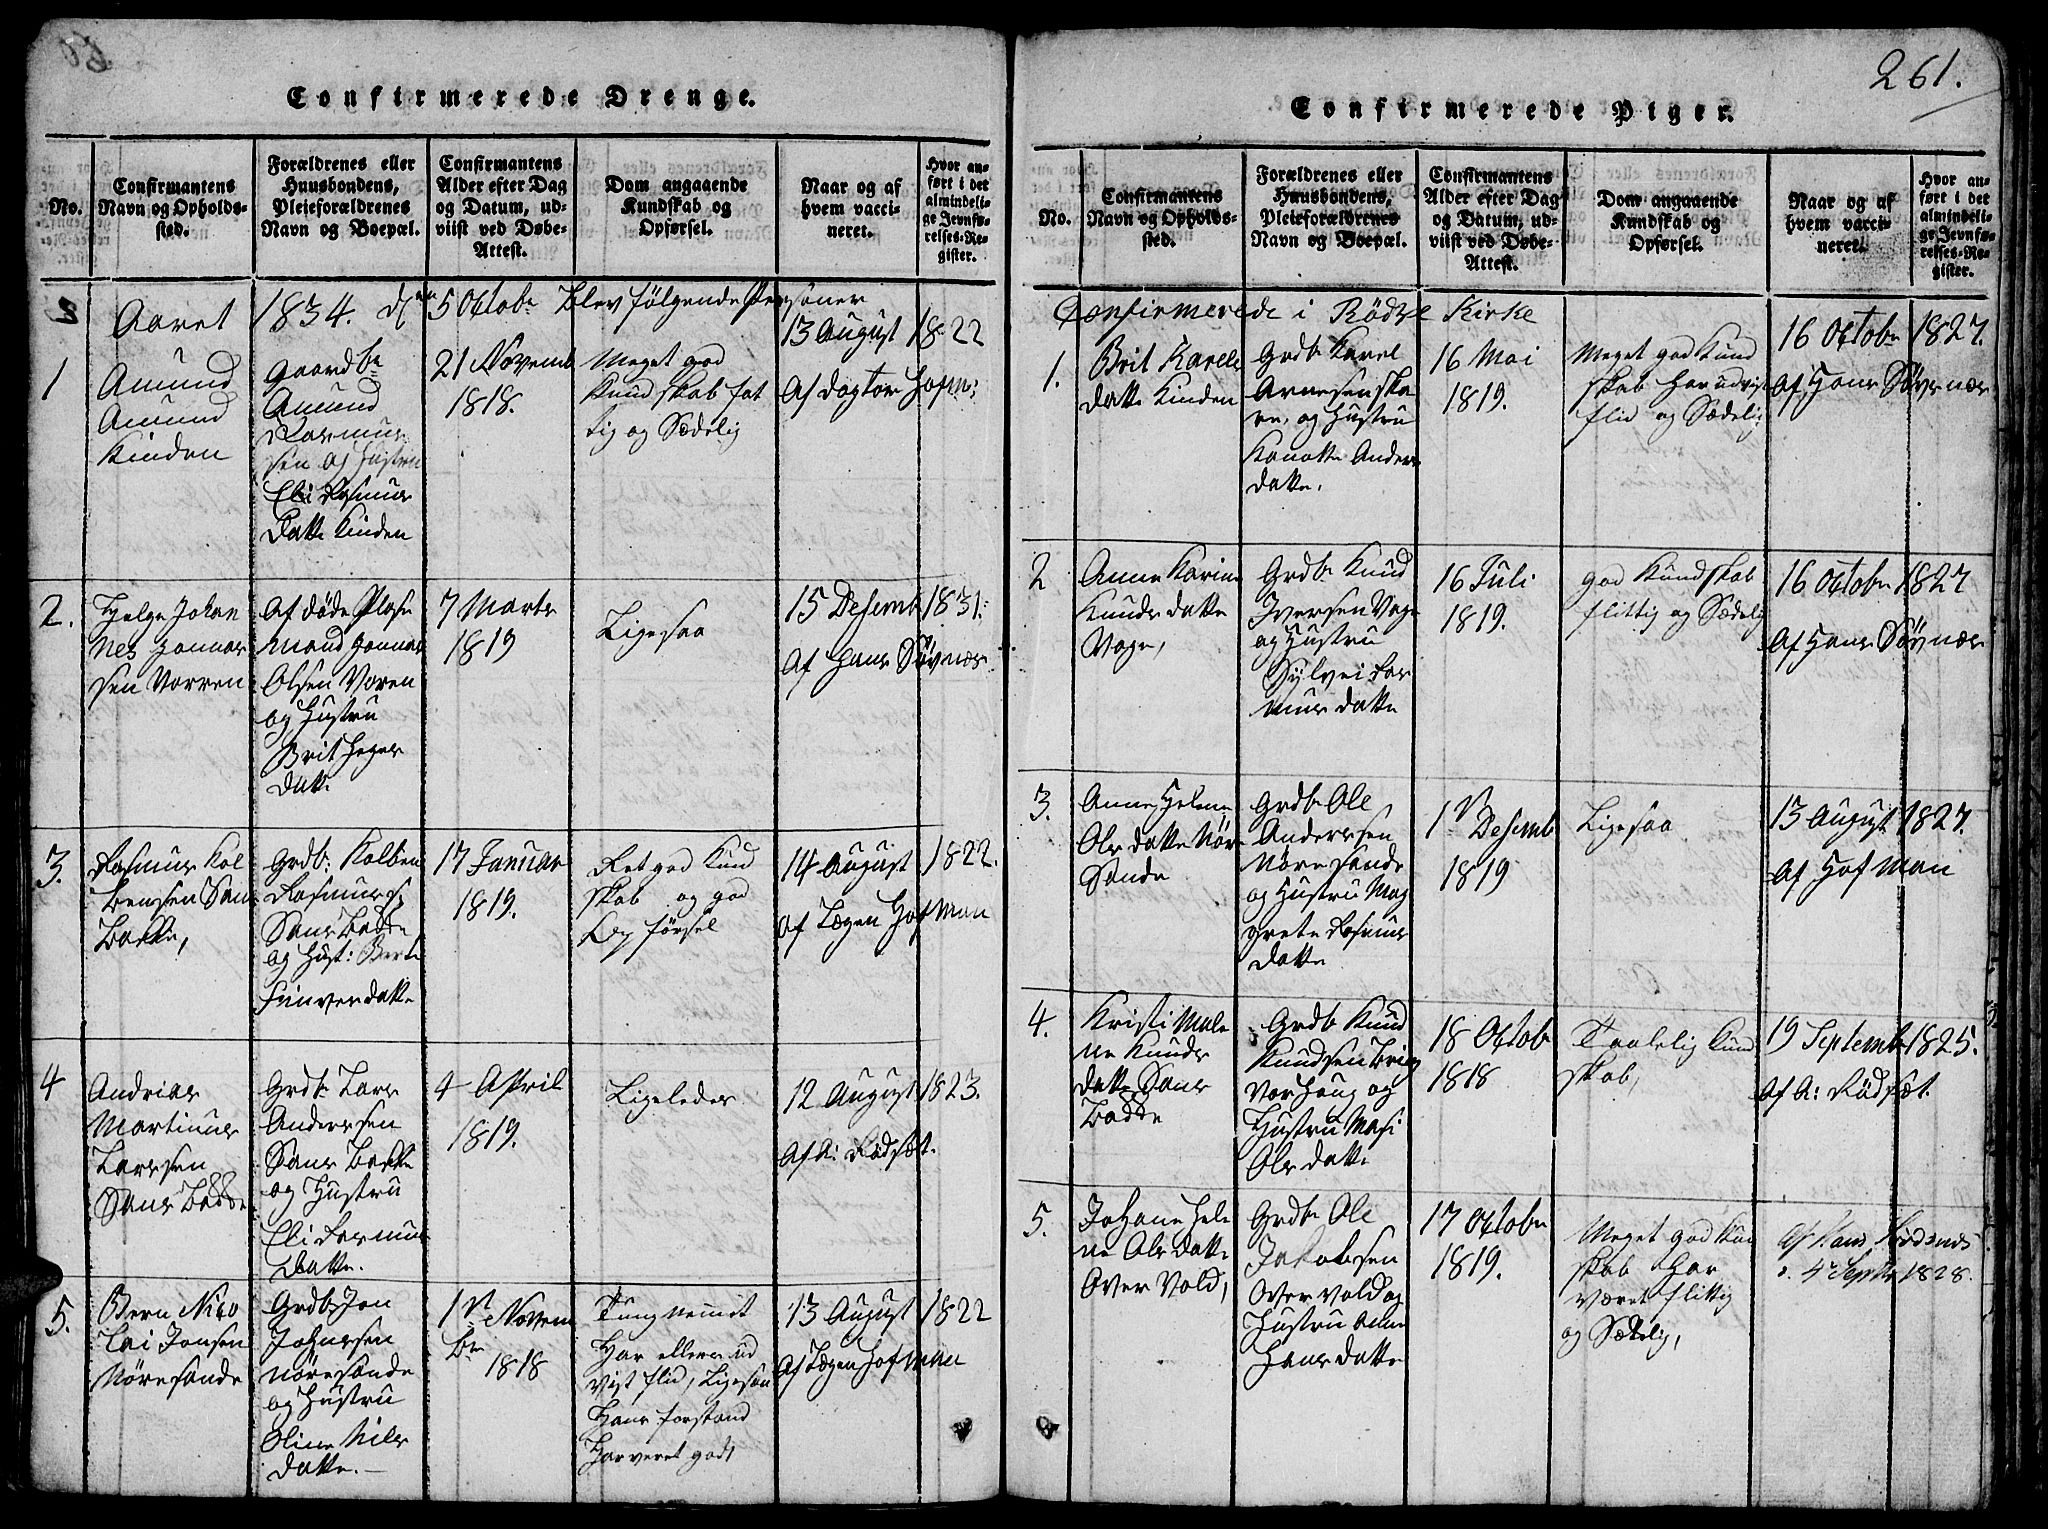 261.
Confirmerede Drenge.
No.
Confirmantens
Navn og Opholds-
sted.
Forældrenes eller
Huusbondens,
Plejeforældrenes
Navn og Boepæl.
Confirmantens
Alder efter Dag
og Datum, ud-
viist ved Døbe-
Attest.
Dom angaaende
Kundskab og
Opførsel.
Naar og af
hvem vacci-
neret.
Hvor an-
ført i det
almindeli-
ge Jevnfø-
relses-Re-
gister.
Aaret 1834. d 5 Octobr Blev følgende Personer
1
Amund
Amund
Kinden
Gaardbr
Amund
Rasmus
sen og Hustru
Eli Rasmus
Datte Kinden
21 Novemb
1818.
Meget god
Kundskab
og Sædelig
13 August 1822
Af Dogtor Hofm:
2.
Helge Johan
Nes Gonnar
sen Vorren
Af døde Plase
Mand Gonnar
Olsen Voren
og Hustru
Brit Heger
datte
7 Marts
1819
Ligesaa
15 Desemb 1831.
Af Hans Søvnær
3.
Rasmus Kol
Bensen Sans
Bakke,
Grdb: Kolben
Rasmuss
Sans Bakke
og Hust: Berte
datte
17 Januar
1819.
Ret god Kund
skab og god
Opførsel
14 August 1822.
Af Lægen Hofman
4
Andrias
Martinus
Larssen
Sans Bakke
Grdb Lars
Anderssen
Sans Bakke
og Hustru
Eli Rasmus
Datte.
4 April
1819.
Ligeledes
12 August 1823.
Af A: Rødsæt.
5.
Bern Nico
Lai Jonsen
Nøresande
Grdb Jon
Johnesen
Nøresande
og Hustru
Oline Nils
datte.
1 Novem
Br
1818
Tung nemidt
Har ellers ud
vist flid, Ligesaa
Hans forstand
Har veret godt
13 August 1822
Af Lægen Hofman
Confirmerede Piger.
No.
Confirmantens
Navn og Opholds-
sted.
Forældrenes eller
Huusbondens,
Plejeforældrenes
Navn og Boepæl.
Confirmantens
Alder efter Dag
og Datum, ud-
viist ved Døbe-
Attest.
Dom angaaende
Kundskab og
Opførsel.
Naar og af
hvem vacci-
neret.
Hvor an-
ført i det
almindeli-
ge Jevnfø-
relses-Re-
gister.
Confirmerede i Rødve Kirke
1.
Brit Karels
datte Kinden
Grdb Karel
Arnesen
og Hustru
Anders
datte.
16 Mai
1819.
Meget god Kund
skab Har udvist
flid og Sædelig
16 Octobr 1827.
Af Hans Søvnær
2
Anne Karine
Knuds datte
Vage,
Grdb Knud
Iversen Vage
og Hustru
Sylvei Ras
mus datte
16 Juli
1819.
god Kundskab
flittig og Sædelig
16 Octobr 1827
Af Hans Søvnær
3.
Anne Helene
Ols datte Nøre
Sande
Grdb Ole
Anderssen
Nøresande
og Hustru Mag
grete Rasmus
datte
1 Desemb
1819
Ligesaa
13 August 1827.
Af Hofman
4.
Kristi Male
ne Knuds
datte Sans
Bakke
Grdb Knud
Knudsen
Haug og
Hustru Masi
Ols datte
18 Octob
1818
Taalelig Kund
skab,
19 Septemb 1825.
Af A: Rødsæt.
5.
Johane Hele
ne Ols datte
Over Vold,
Grdb Ole
Jakobsen
Over vold og
Hustru Anne
Hans datte
17 Octobr
1819.
Meget god Kun
skab Har
Været flittig
og Sædelig,
Af Hans
4 Septbr 1828.